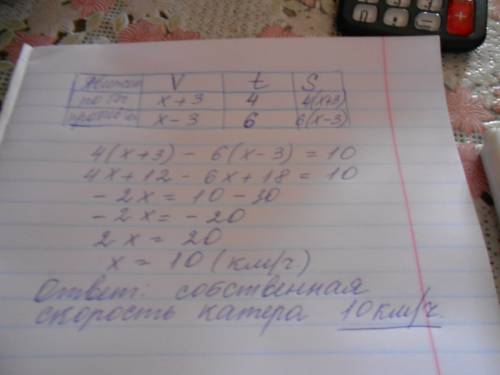 V t S
по теч x+3 4 4(x+3)
x-3 6 6(x-3)
4(x+3) - 6(x-3) = 10
4x+12 - 6x+18 = 10
-2x = 10-30
-2x = -20
2x = 20
x = 10 (км/ч)
Ответ: собственная
скорость катера 10км/ч.